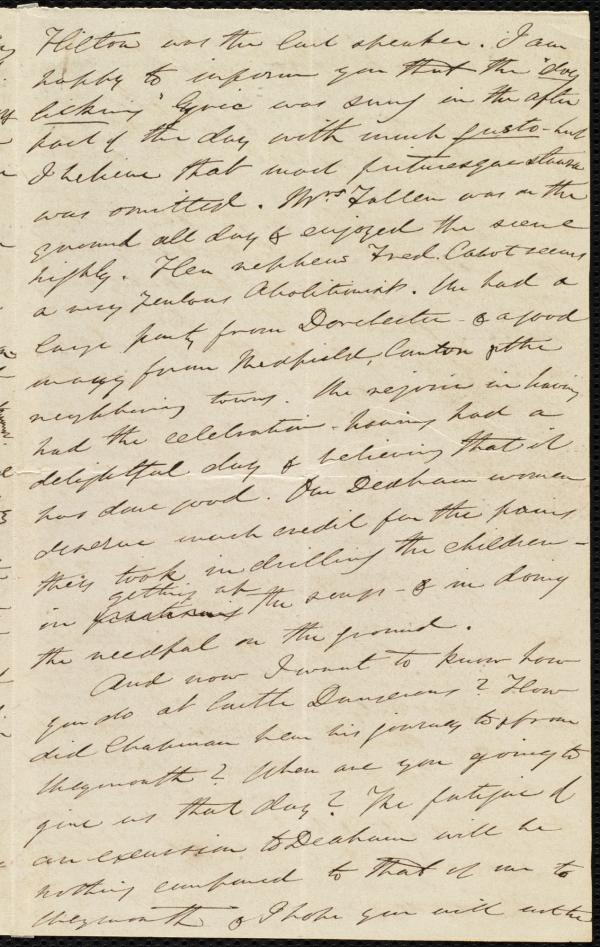 Hilton was the last speaker. I am
happy to inform you that the "dog
licking" Lyric was sung in the after
part of the day with much gusto - but
I believe that most picturesque stanza
was omitted. Mrs Follen was on the
ground all day & enjoyed the scene
highly. Her nephew Fred. Cabot seems
a very zealous Abolitionist. We had a
large party from Dorchester - & a good
many from Medfield, Canton & the
neighboring towns. We rejoice in having
had the celebration - having had a
delightful day & believing that it
has done good. Our Dedham women
deserve much credit for the pains
they took in drilling the children -
in getting up the songs - & in doing
the needful on the ground.
And now I want to know how
you do at Castle Dangerous? How
did Chapman bear his journey to & from
Weymouth? When are you going to
give us that day? The fatigue of
an excursion to Dedham will be
nothing compared to that of one to
Weymouth & I hope you will